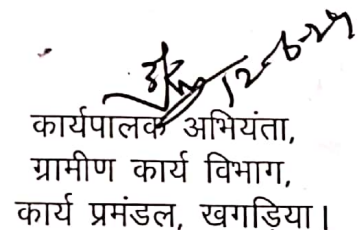 12-6-24
कार्यपालक अभियंता,
ग्रामीण कार्य विभाग,
कार्य प्रमंडल, खगड़िया।